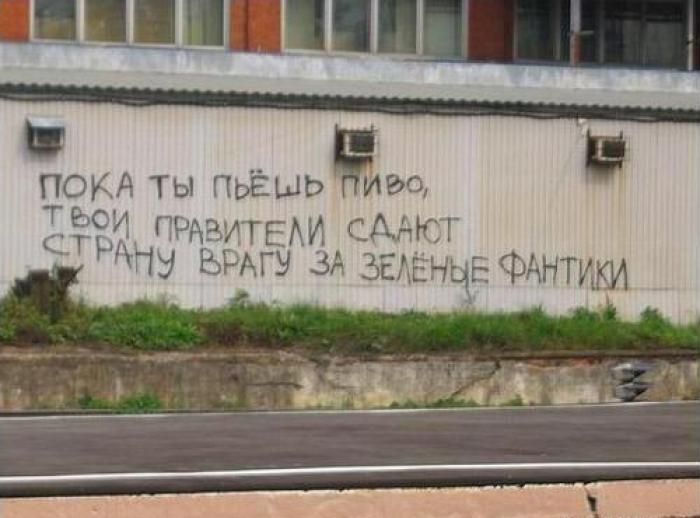 ПОКА ТЫ ПЬЁШЬ ПИВО,
ТВОИ ПРАВИТЕЛИ СДАЮТ
СТРАНУ ВРАГУ ЗА ЗЕЛЁНЫЕ ФАНТИКИ